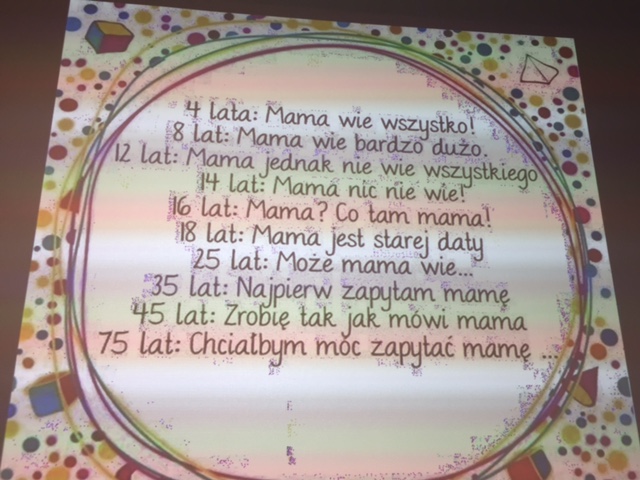 4 lata: Mama wie wszystko!
8 lat: Mama wie bardzo dużo.
12 lat: Mama jednak nie wie wszystkiego
14 lat: Mama nic nie wie!
16 lat: Mama? Co tam mama!
18 lat: Mama jest starej daty
25 lat: Może mama wie...
35 lat: Najpierw zapytam mamę
45 lat: Zrobię tak jak mówi mama
75 lat: Chciałbym móc zapytać mamę ...